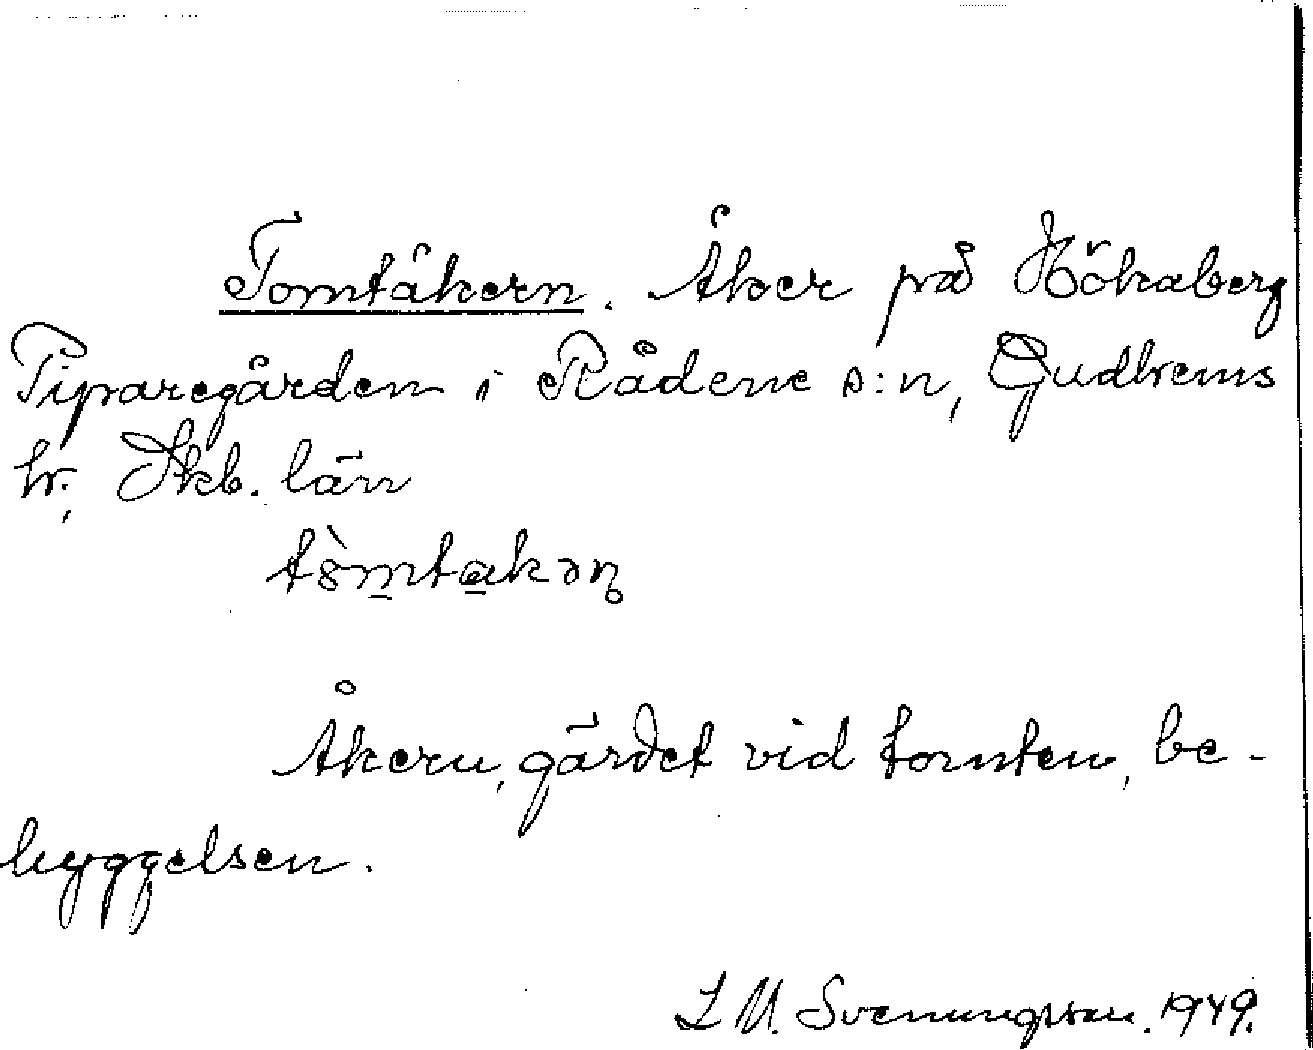 Tomtåkern. Åker på Hökaberg
Piparegården i Rådene s:n, Gudhems
hr., Skb. län
tòmtakən̥
Åkern, gärdet vid tomten, be-
byggelsen.
L M. Svenungsson. 1949.